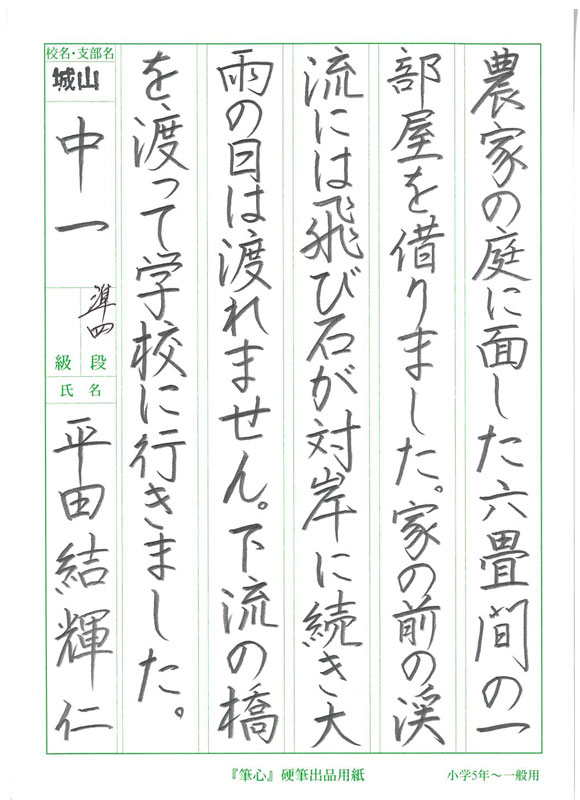 農家の庭に面した六畳間の一
部屋を借りました。家の前の渓
流には飛び石が対岸に続き大
雨の日は渡れません。下流の橋
を渡って学校に行きました。
校名・支部名
城山
中一
準四
級 段
氏 名
平田結輝仁
『筆心』硬筆出品用紙
小学5年～一般用